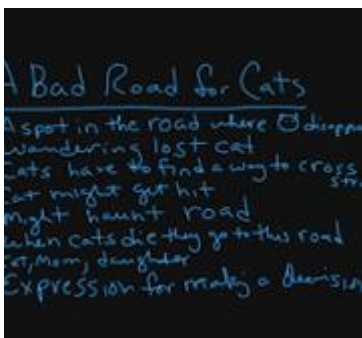 A Bad Road for Cats
A spot in the road where disappe
wandering lost cat
Cats have to find a way to cross
Cat might get hit
might haunt road
when cats die they go to this road
cat, Mom, daughter
Expression for making a decision